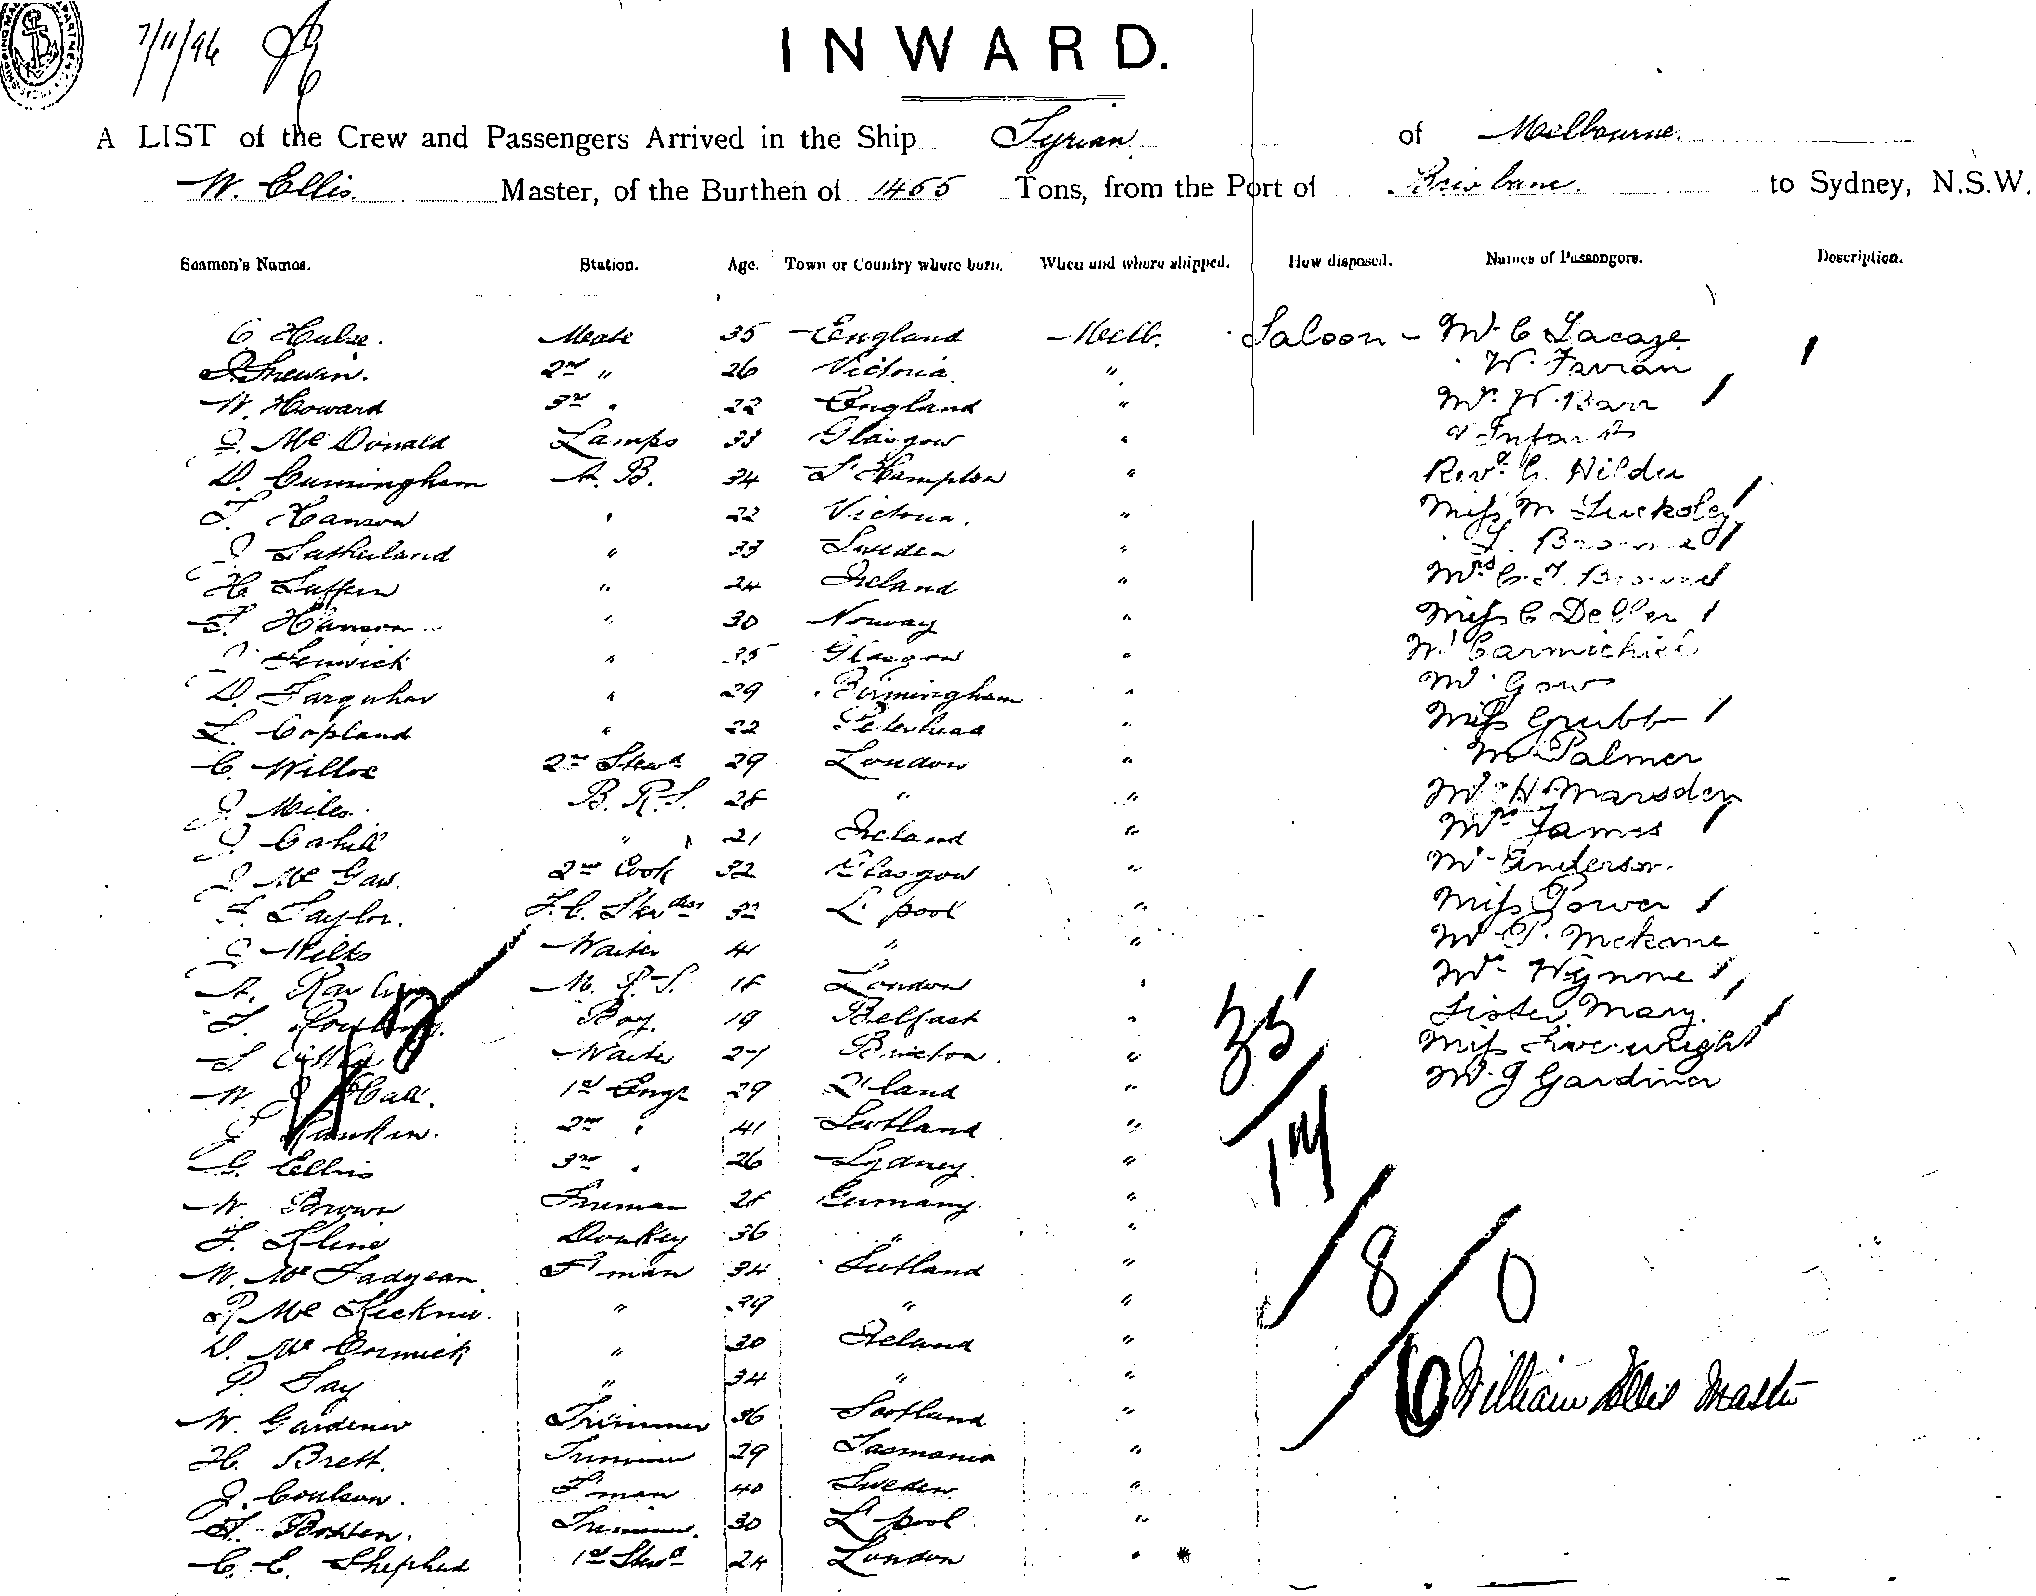 7/11/96
INWARD.
A LIST of the Crew and Passengers Arrived in the Ship Syrian of Melbourne
W. Ellis Master, of the Burthen of 1455 Tons, from the Port of Brisbane to Sydney, N.S.W.
Seamen's Names. Station. Age. Town or Country where born. When and where shipped. How disposed. Names of Passengers. Description.
C Hulse. Mate 35 England Melb. Saloon - Mr C Lacaze
2nd " 26 Victoria " W.
W. Howard 3rd " 22 England " Mrs W. Barr
J. Mc Donald Lamps 33 Glasgow " & Infant
D. Cunningham A. B. 34 S'Hampton " Revd. G. Hilder
T. Hanson " 22 Victoria. " Miss M
J Sutherland " 33 Sweden " Brown
H. " 24 Ireland " Mrs C. J. Brown
Hanson " 30 Norway " Miss C
J Fenwick " 35 Glasgow " Mr Carmichiel
D. Farquhar " 29 Birmingham " Mr Gow
L. Copland " 22 Peterhead " Miss Grubb
C. Willox 2nd Stewd 29 London " Mr Palmer
J. Miles. B. R. S. 28 " " Mr H Marsden
J. Cahill " 21 Ireland " Mrs James
J. Mc Gaw. 2nd Cook 32 Glasgow " Mr Anderson.
F. Taylor. F. C. Stewdess 32 L'pool " Miss Power
J Wilks Waiter 41 " " Mr P. McKane
A. M. R. S. 18 London " Mrs Wynne
Boy. 19 Belfast " Sister Mary.
S Waiter 27 Brixton. " Miss Sivewright
W. J Hall. 1st Engr 29 " Mr J Gardiner
J Rankin. 2nd " 41 Scotland "
G. Ellis 3rd " 26 Sydney "
W. Brown Fireman 28 Germany "
F. Kline Donkey 36 " "
W. Mc Fadyean F'man 34 Scotland "
R. Mc " 29 " "
D. Mc Cormick " 30 Ireland "
P. " 34 " "
W. Gardener Trimmer 36 Scotland "
H. Brett. Trimmer 29 Tasmania "
J. Coulson. F'man 40 Sweden "
Trimmer. 30 L'pool "
C. E. Shepherd 1st Stewd 24 London "
35
14
8
0
6
William Ellis Master